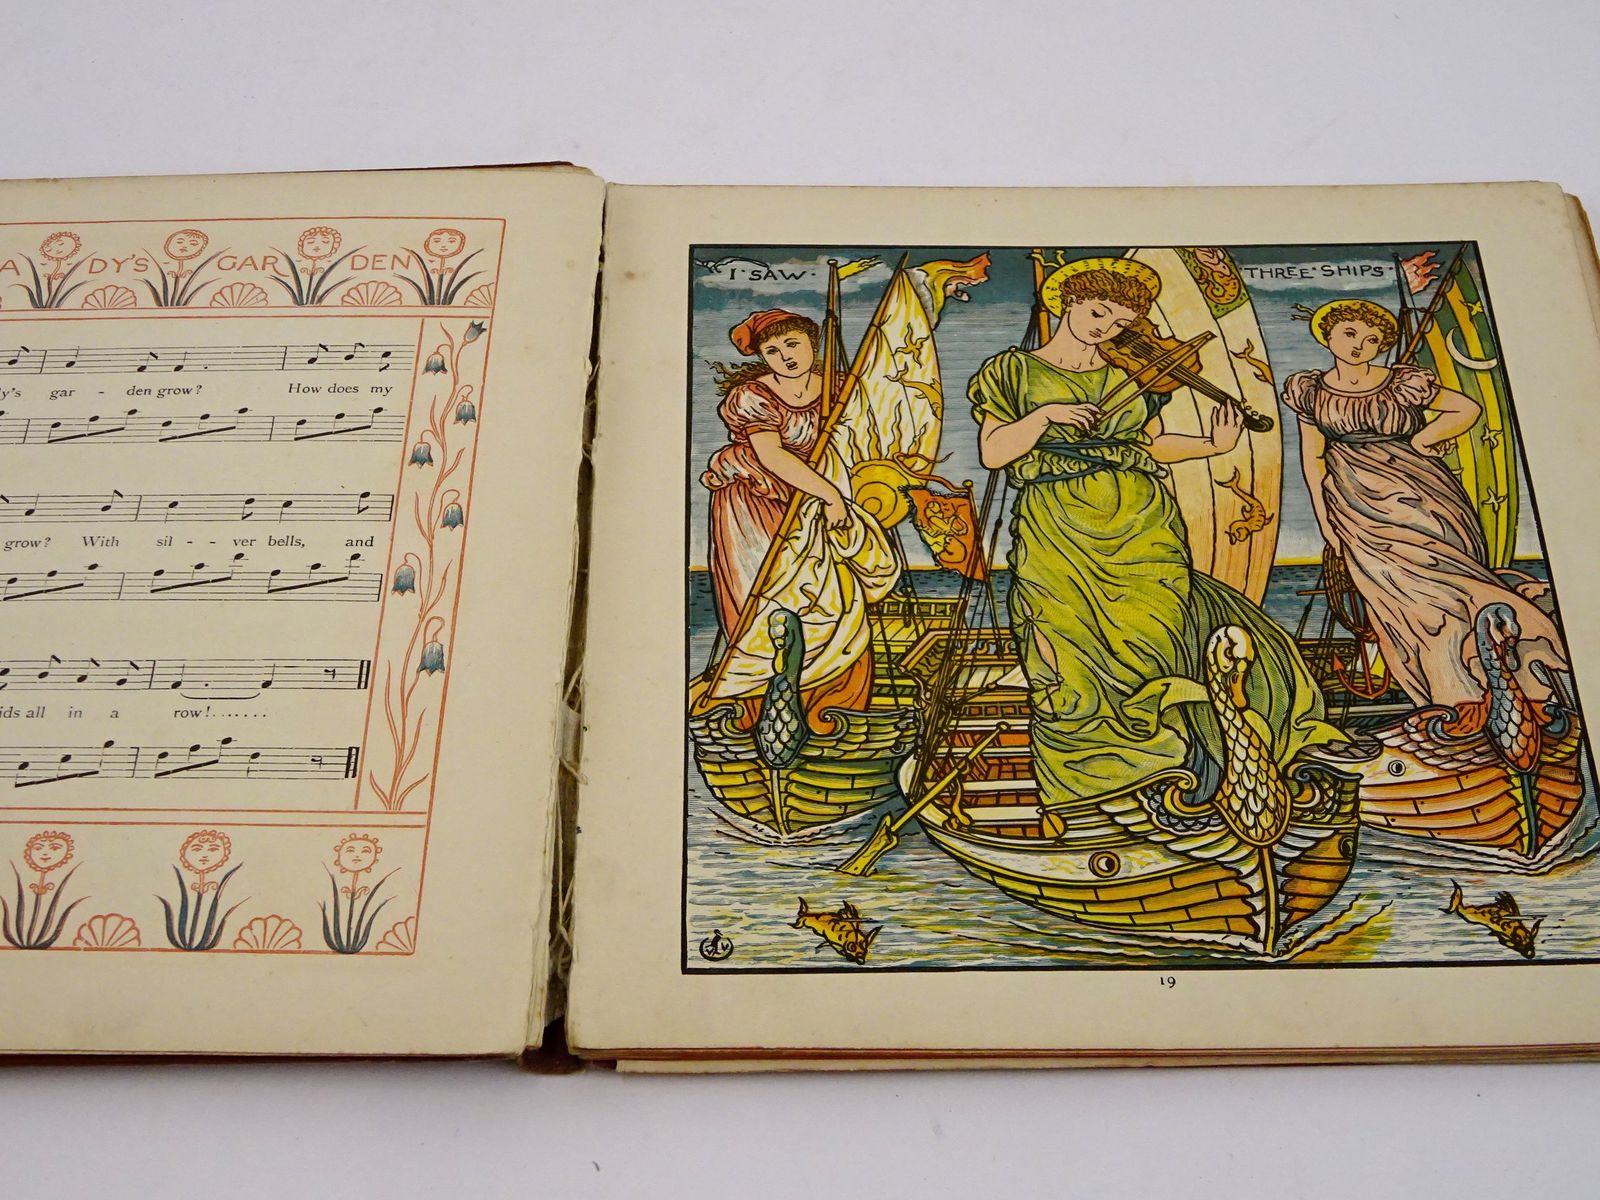 A DY'S GAR DEN
y's gar - den grow? How does my
grow? With sil - - ver bells, and
ids all in a row!.......
I SAW THREE SHIPS
19